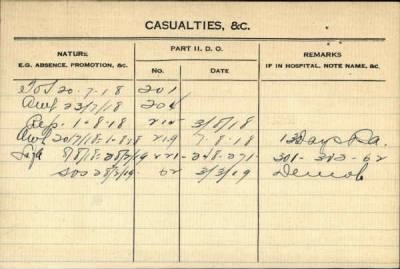 CASUALTIES, &C.
NATURE
E.G. ABSENCE, PROMOTION, &C.
PART II. D. O.
NO.
DATE
REMARKS
IF IN HOSPITAL, NOTE NAME, &C.
TOS 20-7-18 201
Awl 23/7/18 204
Rep. 1-8-18 215 3/8/18
Awl 20/7/18-1-8-18 219 7-8-18 13 Days Pa.
7/8/18-28/2/19 221-248-271 301-332-62
SOS 28/2/19 62 3/3/19 Demob